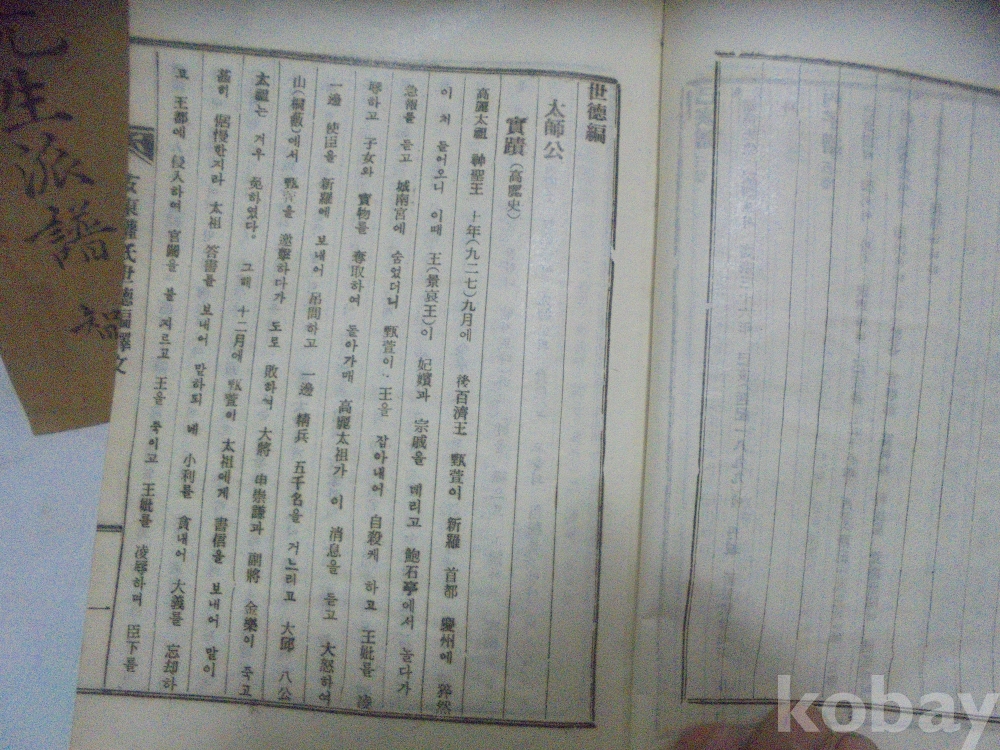 世德編
太師公
實蹟(高麗史)
高麗太祖 神聖王 十年(九二七)九月에 後百濟王 甄萱이 新羅 首都 慶州에 猝然
이 처 들어오니 이때 王(景哀王)이 妃嬪과 宗戚을 데리고 鮑石亭에서 놀다가
急報를 듣고 城南宮에 숨었더니 甄萱이 王을 잡아내어 自殺케 하고 王妣를 凌
辱하고 子女와 寶物을 奪取하여 돌아가매 高麗太祖가 이 消息을 듣고 大怒하여
一邊 使臣을 新羅에 보내어 吊問하고 一邊 精兵 五千名을 거느리고 大邱 八公
山(桐藪)에서 甄萱을 邀擊하다가 도로 敗하여 大將 申崇謙과 副將 金樂이 죽고
太祖는 겨우 免하였다. 그해 十二月에 甄萱이 太祖에게 書信을 보내어 말이
甚히 倨慢한지라 太祖 答書를 보내어 말하되 네 小利를 貪내어 大義를 忘却하
고 王都에 侵入하여 宮闕을 불 지르고 王을 죽이고 王妣를 凌辱하며 臣下를
安東權氏世德編譯文
一
元
生
派
譜
智
kobay